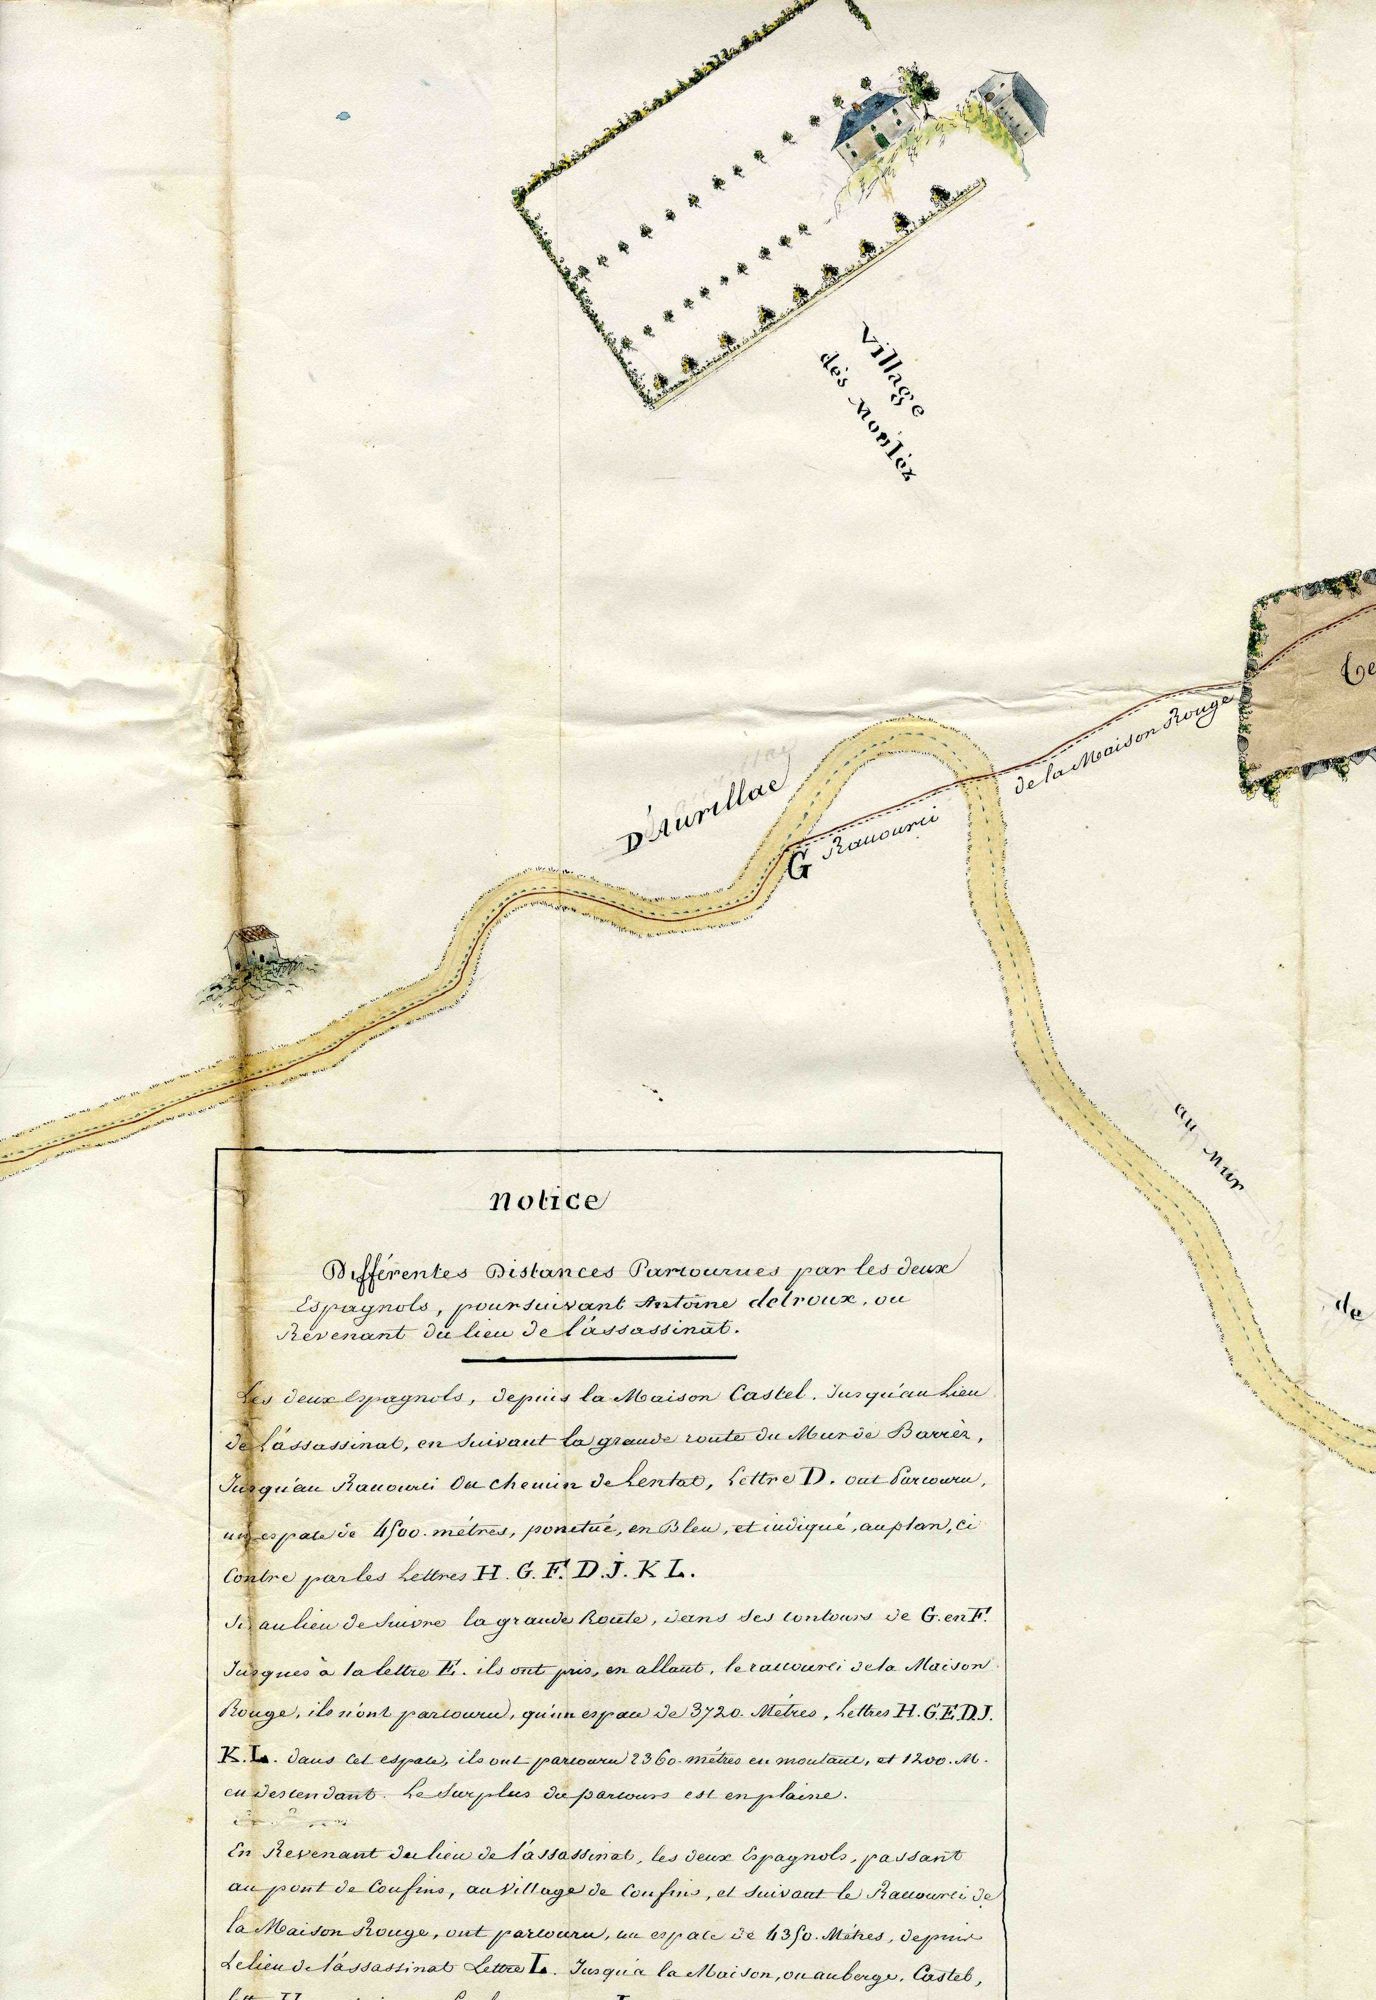 Village
des Moulèz
D'Aurillac
G
Raccourci
de la Maison Rouge
au Mur
de
Notice
Différentes Distances Parcourues par les deux
Espagnols, poursuivant Antoine delroux, ou
Revenant du lieu de l'assassinat.
Les deux Espagnols, depuis la Maison Castel. Jusqu'au Lieu
de l'assassinat, en suivant la grande route du Mur de Barrèz,
Jusqu'au Raccourci Ou chemin de Lentat, Lettre D. ont Parcouru,
un espace de 4500. mètres, ponctué, en Bleu, et indiqué, au plan, ci
Contre par les Lettres H. G. F. D. J. K L.
Si au lieu de Suivre la grande Route, dans ses contours de G. en F.
Jusques à la lettre E. ils ont pris, en allant, le raccourci de la Maison
Rouge, ils n'ont parcouru, qu'un espace de 3720. Mètres, Lettres H. G. E. D. J.
K. L. dans cet espace, ils ont parcouru 2360. mètres en montant, et 1200. M.
en descendant. Le Surplus du parcours est en plaine.
En Revenant du lieu de l'assassinat, les deux Espagnols, passant
au pont de Confins, au Village de Confins, et suivant le Raccourci de
la Maison Rouge, ont parcouru, un espace de 4350. Mètres, depuis
Le lieu de l'assassinat Lettre L. Jusqu'à la Maison, ou auberge, Castel,